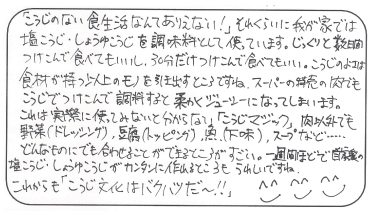 「こうじのない食生活なんてありえない！」それくらいに我が家では
塩こうじ・しょうゆこうじを調味料として使っています。じっくりと数日間
つけこんで食べてもいいし、30分だけつけこんで食べてもいい。こうじのよさは
食材が持つ以上のモノを引き出すところですね。スーパーの特売の肉でも
こうじでつけこんで調理すると柔かくジューシーになってしまいます。
これは実際に使ってみないと分からない「こうじマジック」。肉以外でも
野菜(ドレッシング)、豆腐(トッピング)、魚(下味)、スープなど……
どんなものにでも合わせることができるところがすごい。一週間ほどで自家製の
塩こうじ・しょうゆこうじがカンタンに作れるところもうれしいですね。
これからも「こうじ文化はバクハツだ〜!!」